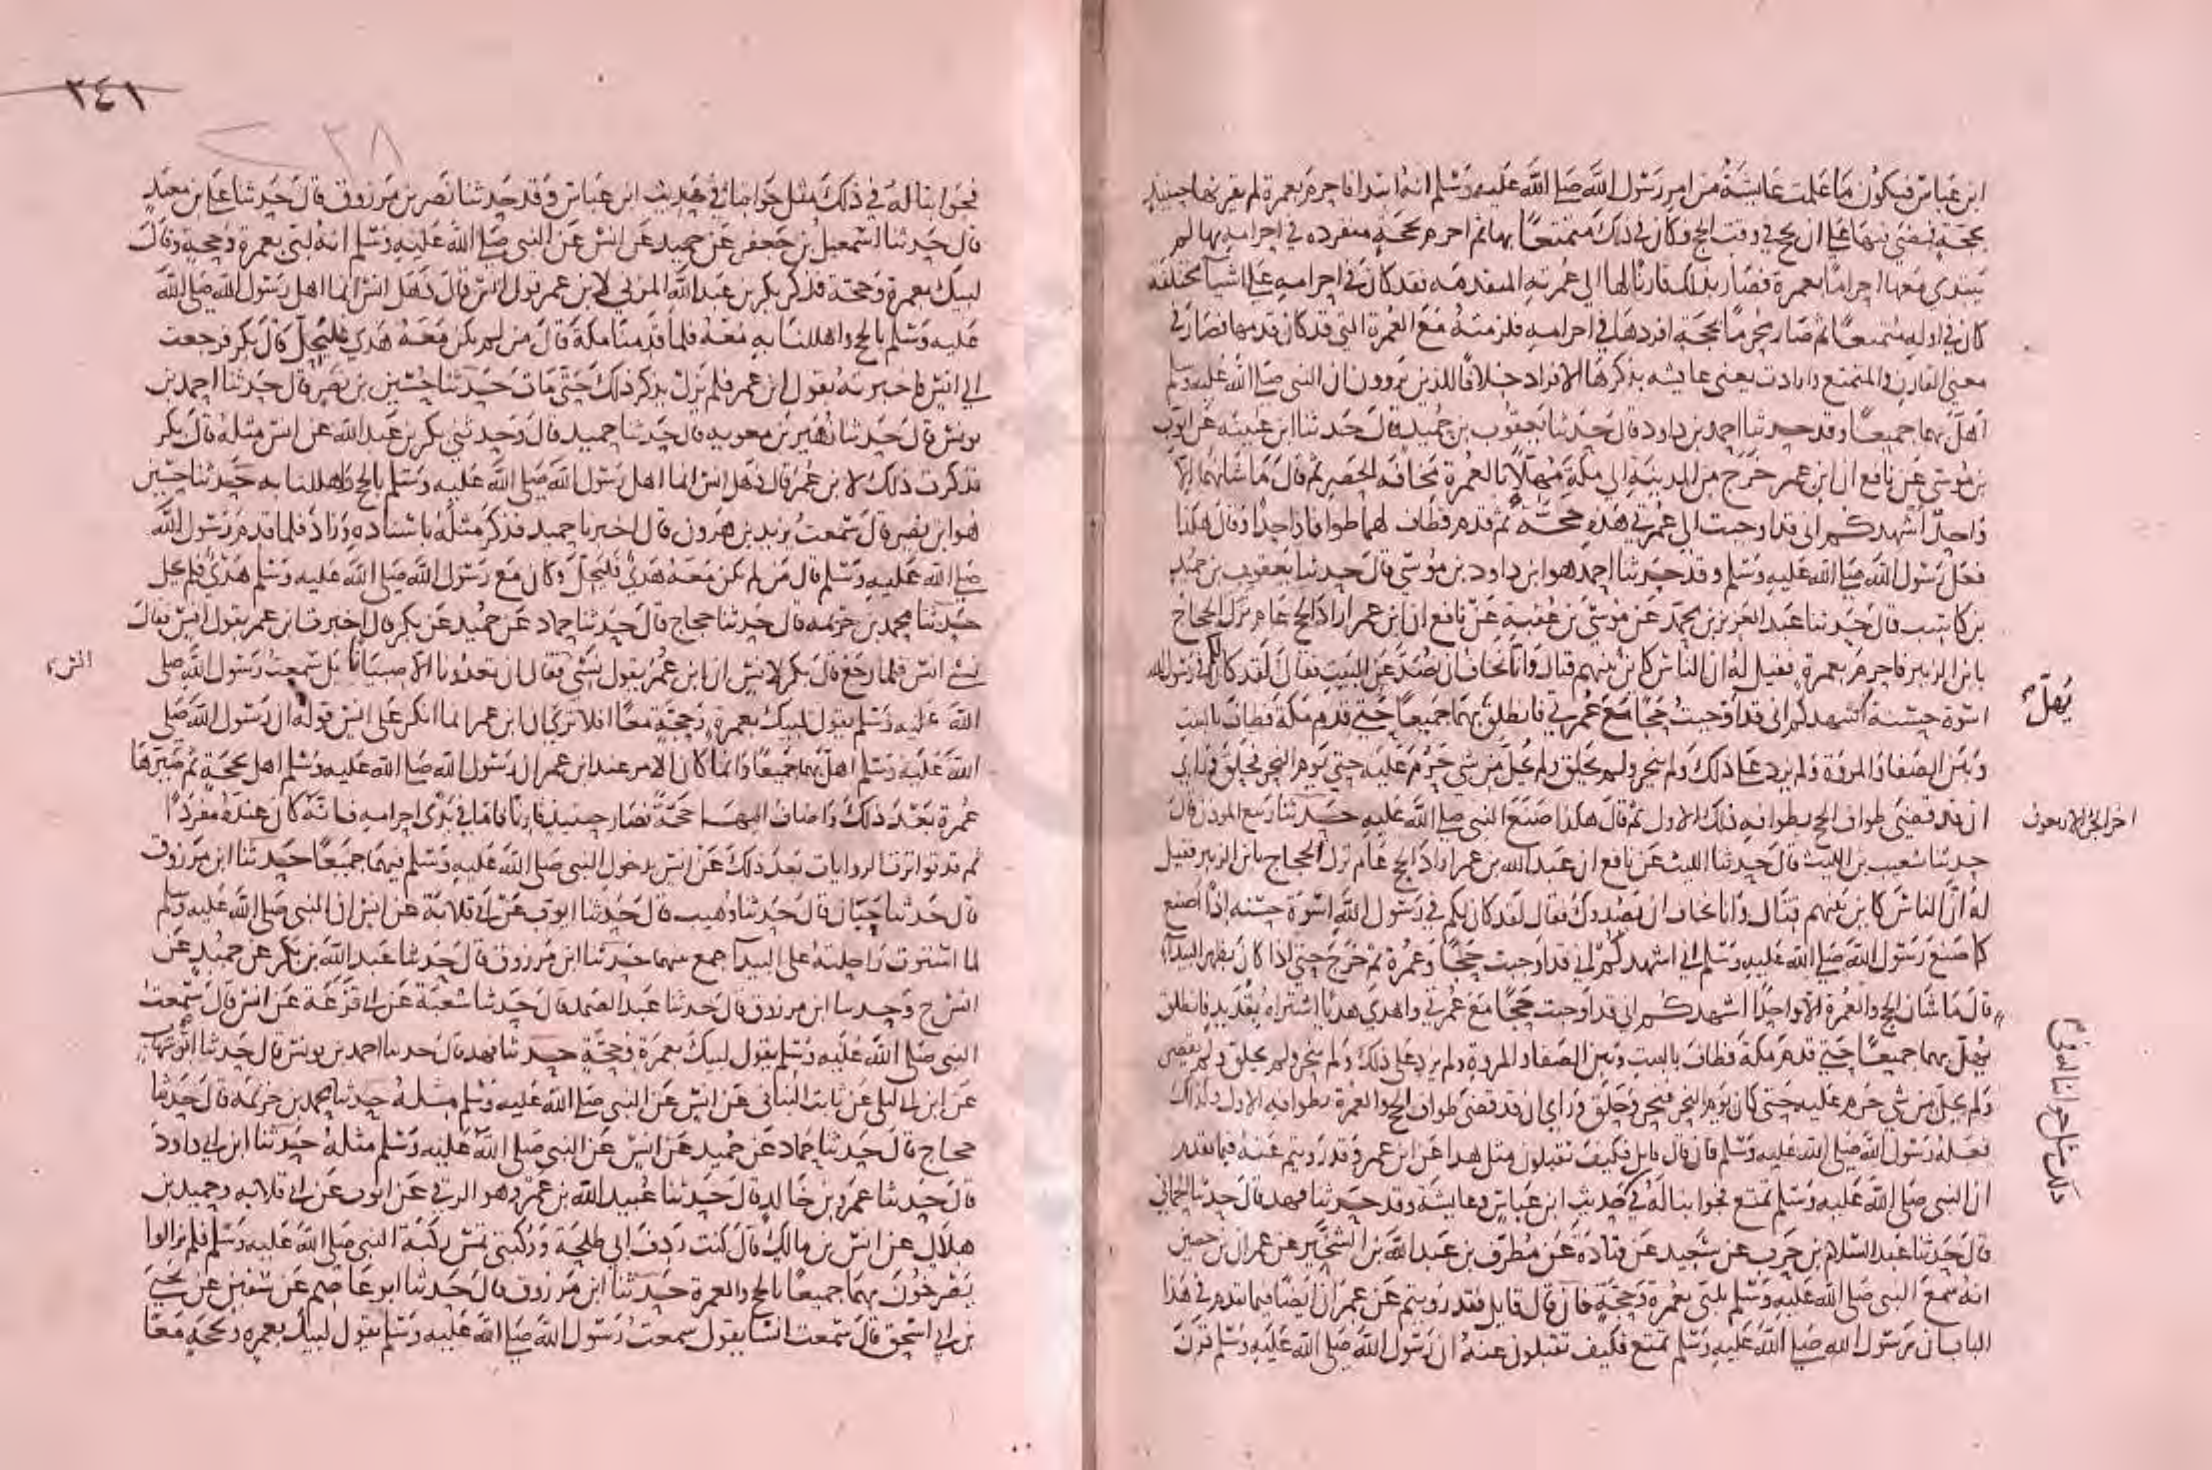 ابن عباس فيكون ما علمت عايشة من امر رسول الله صلى الله عليه وسلم انه ابتدا فاحرم بعمرة لم يقرنها حينيذ
بحجة فمضى فيها على ان يحج في وقت الحج وكان في ذلك متمتعا بها ثم احرم بحجة منفردة في احرامه بها لم
يبتدي معها احراما بعمرة فصار بذلك قارنا لها الى عمرته المتقدمة فقد كان في احرامه على اشيا مختلفة
كان في اوله متمتعا ثم صار محرما بحجة افردها في احرامه فلزمته مع العمرة التي قد كان قدمها فصار في
معنى القارن والمتمتع وارادت يعني عايشة بذكرها الافراد خلافا للذين يروون ان النبي صلى الله عليه وسلم
اهل بهما جميعا وقد حدثنا احمد بن داود قال حدثنا يعقوب بن حميد قال حدثنا ابن عيينة عن ايوب
بن موسى عن نافع ان ابن عمر خرج من المدينة الى مكة مهلا بالعمرة مخافة الحصر ثم قال ما شانهما الا
واحدا اشهدكم اني قد اوجبت الى عمرتي هذه حجة ثم قدم فطاف لهما طوافا واحدا وقال هكذا
فعل رسول الله صلى الله عليه وسلم وقد حدثنا احمد هو ابن داود بن موسى قال حدثنا يعقوب بن حميد
بن كاسب قال حدثنا عبد العزيز بن محمد عن موسى بن عقبة عن نافع ان ابن عمر اراد الحج عام نزل الحجاج
بابن الزبير فاحرم بعمرة فقيل له ان الناس كاين بينهم قتال وانا نخاف ان نصد عن البيت فقال لقد كان لكم في رسول الله
اسوة حسنة اشهدكم اني قد اوجبت حجا مع عمرتي فانطلق بهما جميعا حتى قدم مكة فطاف بالبيت
وبين الصفا والمروة ولم يزد على ذلك ولم ينحر ولم يحلق ولم يحل من شي حرم عليه حتى يوم النحر فحلق وراي
ان قد قضى طواف الحج بطوافه ذلك الاول ثم قال هكذا صنع النبي صلى الله عليه حدثنا ربيع الموذن قال
حدثنا شعيب بن الليث قال حدثنا الليث عن نافع ان عبد الله بن عمر اراد الحج عام نزل الحجاج بابن الزبير فقيل
له ان الناس كاين بينهم قتال وانا نخاف ان يصدوك فقال لقد كان لكم في رسول الله اسوة حسنة اذا اصنع
كما صنع رسول الله صلى الله عليه وسلم اني اشهدكم اني قد اوجبت حجا وعمرة ثم خرج حتى اذا كان بظهر البيدا
قال ما شان الحج والعمرة الا واحدا اشهدكم اني قد اوجبت حجا مع عمرتي واهدى هديا اشتراه بقديد فانطلق
يهل بهما جميعا حتى قدم مكة فطاف بالبيت وبين الصفا والمروة ولم يزد على ذلك ولم ينحر ولم يحلق ولم يقصر
ولم يحل من شي حرم عليه حتى كان يوم النحر فنحر وحلق وراي ان قد قضى طواف الحج والعمرة بطوافه الاول وكذلك
فعله رسول الله صلى الله عليه وسلم فان قال قايل فكيف تقبلون مثل هذا عن ابن عمر وقد رويتم عنه فيما تقدم
ان النبي صلى الله عليه وسلم تمتع فجوابنا له في حديث ابن عباس وعايشة وقد حدثنا فهد قال حدثنا الحماني
قال حدثنا عبد السلام بن حرب عن سعيد عن قتادة عن مطرف بن عبد الله بن الشخير عن عمران بن حصين
انه سمع النبي صلى الله عليه وسلم يلبي بعمرة وحجة فان قال قايل فقد رويتم عن عمران ايضا فيما تقدم في هذا
الباب ان رسول الله صلى الله عليه وسلم تمتع فكيف تقبلون عنه ان رسول الله صلى الله عليه وسلم قرن
يهل
اخر الجز الاربعون
٢٤١
٢٣٨
فجوابنا له في ذلك مثل جوابنا في حديث ابن عباس وقد حدثنا نصر بن مرزوق قال حدثنا علي بن معبد
قال حدثنا اسمعيل بن جعفر عن حميد عن انس عن النبي صلى الله عليه وسلم انه لبى بعمرة وحجة وقال
لبيك بعمرة وحجة فذكر بكر بن عبد الله المزني لابن عمر قول انس قال ذهل انس انما اهل رسول الله صلى الله
عليه وسلم بالحج واهللنا به معه فلما قدمنا مكة قال من لم يكن معه هدي فليحل قال بكر فرجعت
الى انس فاخبرته بقول ابن عمر فلم يزل يذكر ذلك حتى مات حدثنا حسين بن نصر قال حدثنا احمد بن
يونس قال حدثنا زهير بن معوية قال حدثنا حميد قال وحدثني بكر بن عبد الله عن انس مثله قال بكر
فذكرت ذلك لابن عمر قال ذهل انس انما اهل رسول الله صلى الله عليه وسلم بالحج واهللنا به حدثنا حسين
هو ابن نصر قال سمعت يزيد بن هرون قال اخبرنا حميد فذكر مثله باسناده وزاد فلما قدم رسول الله
صلى الله عليه وسلم قال من لم يكن معه هدي فليحل وكان مع رسول الله صلى الله عليه وسلم هدي فلم يحل
حدثنا محمد بن خزيمة قال حدثنا حجاج قال حدثنا حماد عن حميد عن بكر قال اخبرت ابن عمر بقول انس فقال
نسي انس فلما رجع قال بكر لانس ان ابن عمر يقول نسي فقال ان تعدونا الا صبيانا بل سمعت رسول الله صلى
الله عليه وسلم يقول لبيك بعمرة وحجة معا افلا ترى ان ابن عمر انما انكر على انس قوله ان رسول الله صلى
الله عليه وسلم اهل بهما جميعا وانما كان الامر عند ابن عمر ان رسول الله صلى الله عليه وسلم اهل بحجة ثم صيرها
عمرة بعد ذلك واضاف اليها حجة فصار حينيذ قارنا فاما في بدء احرامه فانه كان عنده مفردا
ثم قد تواترت الروايات بعد ذلك عن انس بدخول النبي صلى الله عليه وسلم فيهما جميعا حدثنا ابن مرزوق
قال حدثنا حبان قال حدثنا وهيب قال حدثنا ايوب عن ابي قلابة عن انس ان النبي صلى الله عليه وسلم
لما استوت راحلته على البيدا جمع بينهما حدثنا ابن مرزوق قال حدثنا عبد الله بن بكر عن حميد عن
انس ح وحدثنا ابن مرزوق قال حدثنا عبد الصمد قال حدثنا شعبة عن ابي قزعة عن انس قال سمعت
النبي صلى الله عليه وسلم يقول لبيك بعمرة وحجة حدثنا فهد قال حدثنا احمد بن يونس قال حدثنا ابو شهاب
عن ابن ابي ليلى عن ثابت البناني عن انس عن النبي صلى الله عليه وسلم مثله حدثنا محمد بن خزيمة قال حدثنا
حجاج قال حدثنا حماد عن حميد عن انس عن النبي صلى الله عليه وسلم مثله حدثنا ابن ابي داود
قال حدثنا عمرو بن خالد قال حدثنا عبيد الله بن عمرو هو الرقي عن ايوب عن ابي قلابة وحميد بن
هلال عن انس بن مالك قال كنت ردف ابي طلحة وركبتي تمس ركبة النبي صلى الله عليه وسلم فلم يزالوا
يصرخون بهما جميعا بالحج والعمرة حدثنا ابن مرزوق قال حدثنا ابو عاصم عن سفين عن يحيى
بن ابي اسحق قال سمعت انسا يقول سمعت رسول الله صلى الله عليه وسلم يقول لبيك بعمرة وبحجة معا
انس